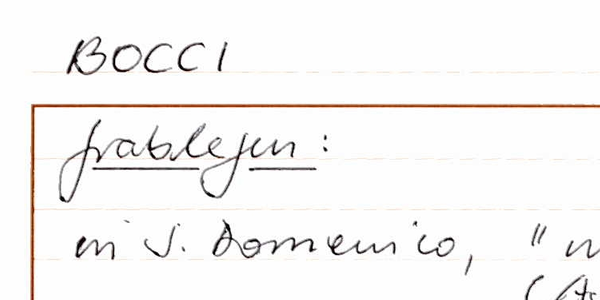 BOCCI
Grablegen:
in S. Domenico, "